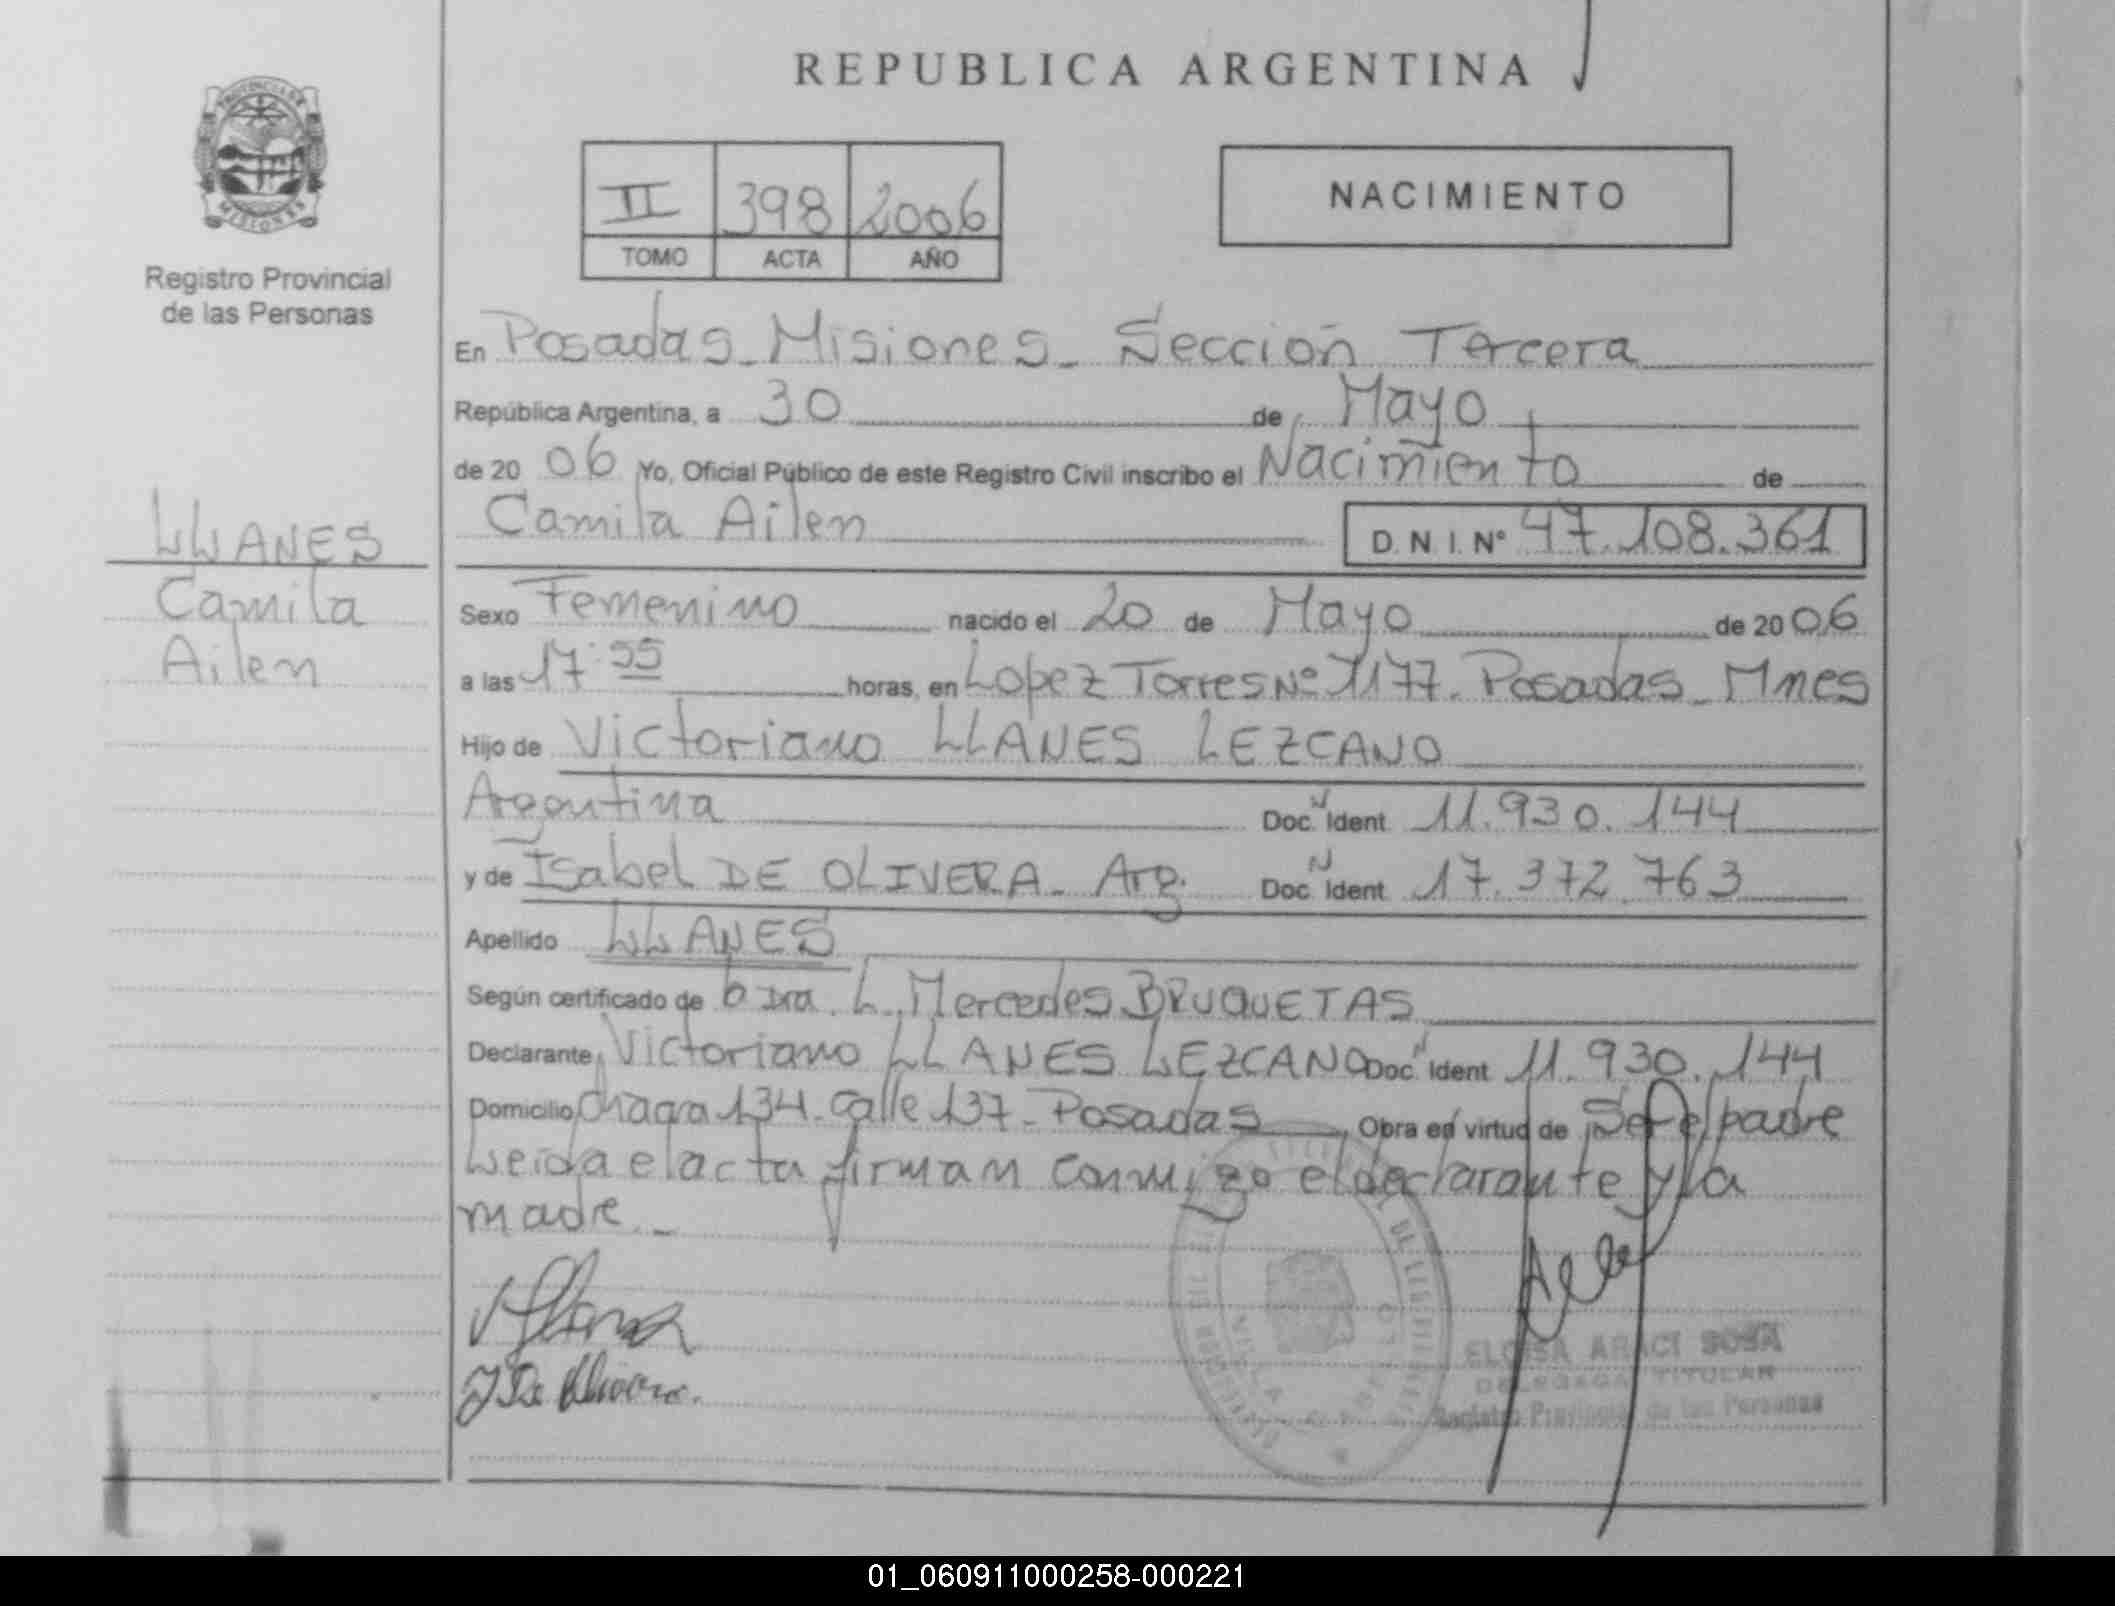 REPUBLICA ARGENTINA
PROVINCIA DE
MISIONES
Registro Provincial
de las Personas
II 398 2006
TOMO ACTA AÑO
NACIMIENTO
En Posadas - Misiones - Sección Tercera
República Argentina, a 30 de Mayo
de 20 06 Yo, Oficial Público de este Registro Civil inscribo el Nacimiento de
Camila Ailen D.N.I. Nº 47.108.361
LLANES
Camila
Ailen
Sexo Femenino nacido el 20 de Mayo de 20 06
a las 17:55 horas, en Lopez Torres Nº 1177 - Posadas - Mnes
Hijo de Victoriano LLANES LEZCANO
Argentina Doc. N Ident 11.930.144
y de Isabel DE OLIVERA - Arg. Doc. N Ident 17.372.763
Apellido LLANES
Según certificado de Dra. L. Mercedes BRUQUETAS
Declarante Victoriano LLANES LEZCANO Doc. N Ident 11.930.144
Domicilio Chacra 134 - Calle 137 - Posadas Obra en virtud de Ser el padre
Leida el acta firman conmigo el declarante y la
madre -
ELOISA ARACI SOSA
DELEGADA TITULAR
Registro Provincial de las Personas
01_060911000258-000221